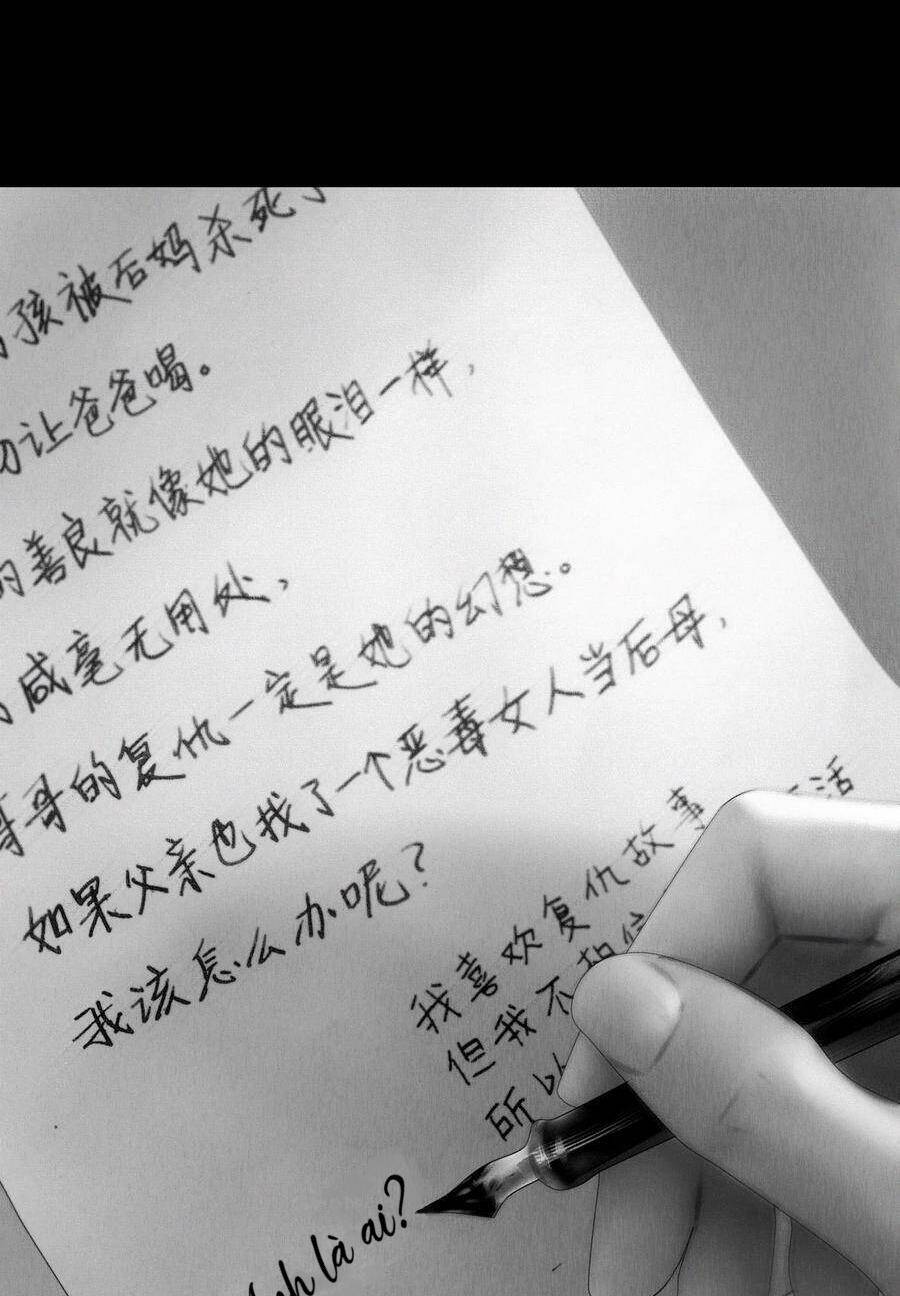 孩被后妈杀死了
让爸爸喝。
的善良就像她的眼泪一样,
咸毫无用处,
哥哥的复仇一定是她的幻想。
如果父亲也找了一个恶毒女人当后母,
我该怎么办呢?
我喜欢复仇故事 活
但我不相信
所以
là ai?